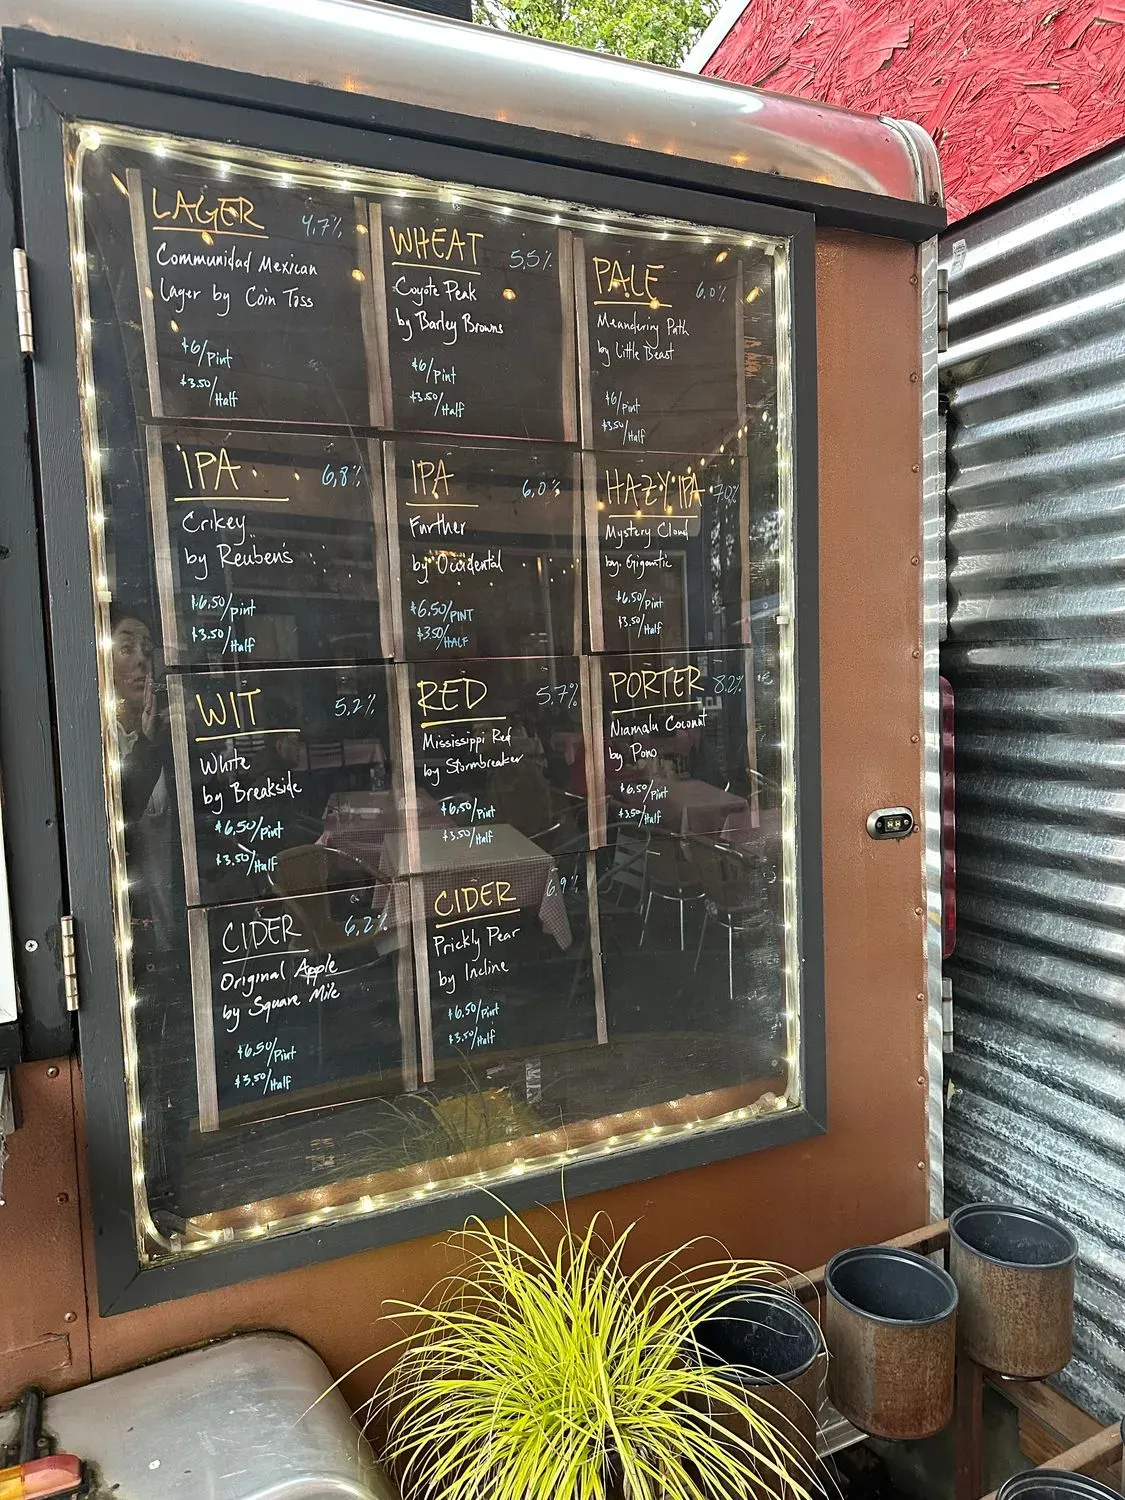 LAGER 4.7%
Communidad Mexican
Lager by Coin Toss
$6/Pint
$3.50/Half
WHEAT 5.5%
Coyote Peak
by Barley Browns
$6/Pint
$3.50/Half
PALE 6.0%
Meandering Path
by Little Beast
$6/Pint
$3.50/Half
IPA 6.8%
Crikey
by Reuben's
$6.50/pint
$3.50/Half
IPA 6.0%
Further
by Occidental
$6.50/PINT
$3.50/HALF
HAZY IPA 7.0%
Mystery Cloud
by Gigantic
$6.50/Pint
$3.50/Half
WIT 5.2%
White
by Breakside
$6.50/Pint
$3.50/Half
RED 5.7%
Mississippi Red
by Stormbreaker
$6.50/Pint
$3.50/Half
PORTER 8.2%
Niamalu Coconut
by Pono
$6.50/Pint
$3.50/Half
CIDER 6.2%
Original Apple
by Square Mile
$6.50/Pint
$3.50/Half
CIDER 6.9%
Prickly Pear
by Incline
$6.50/Pint
$3.50/Half